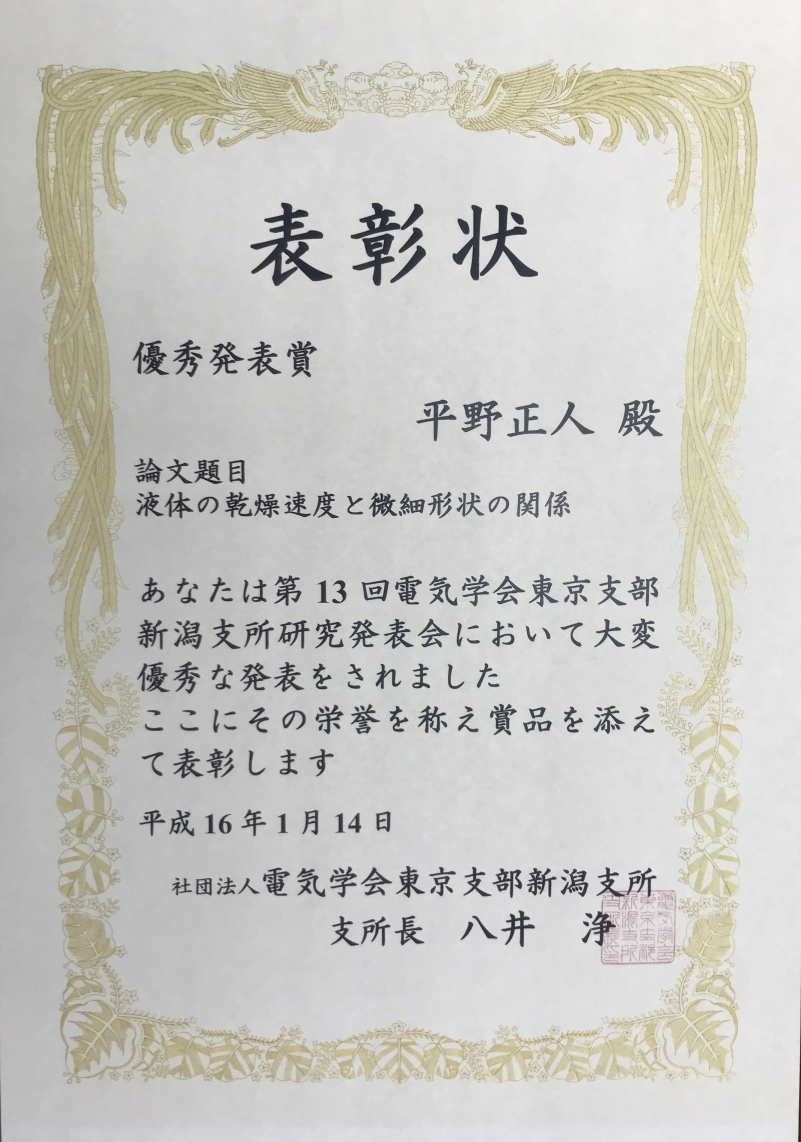 表彰状
優秀発表賞
平野正人 殿
論文題目
液体の乾燥速度と微細形状の関係
あなたは第 13 回電気学会東京支部
新潟支所研究発表会において大変
優秀な発表をされました
ここにその栄誉を称え賞品を添え
て表彰します
平成 16 年 1 月 14 日
社団法人電気学会東京支部新潟支所
支所長 八井 浄